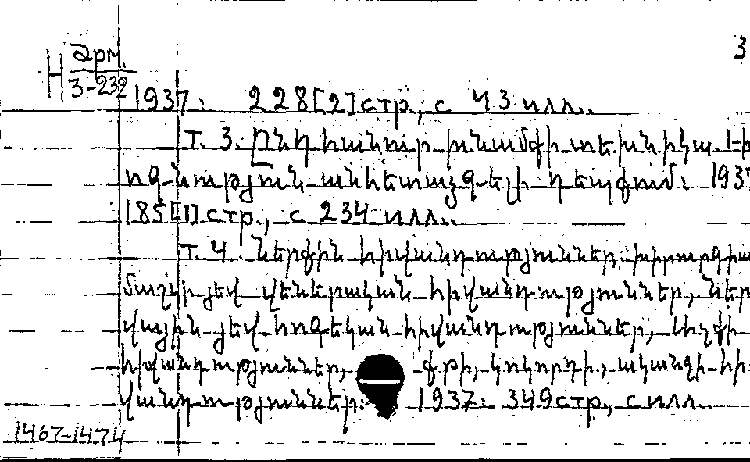 3
Н Әрм.
3-232
1937: 228[2] стр., с 43 илл.
Т. 3. Ընդհանուր խնամքի տեխնիկա.
ոգնություն անհետաձգելի դեպքում: 1937
185[1] стр., с 234 илл.
Т. 4. Ներքին հիվանդություններ, խիրուրգիա
մաշկի յեվ վեներական հիվանդություններ, ներ
վային յեվ հոգեկան հիվանդություններ,
հիվանդություններ, քթի, կոկորդի, ականջի հի
վանդություններ: 1937: 349 стр., с илл.
1467-1474